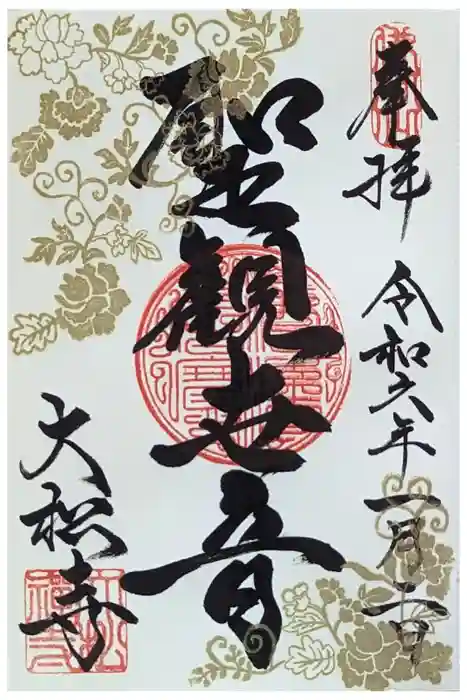 奉拝
令和六年一月二日
聖観世音
大松寺